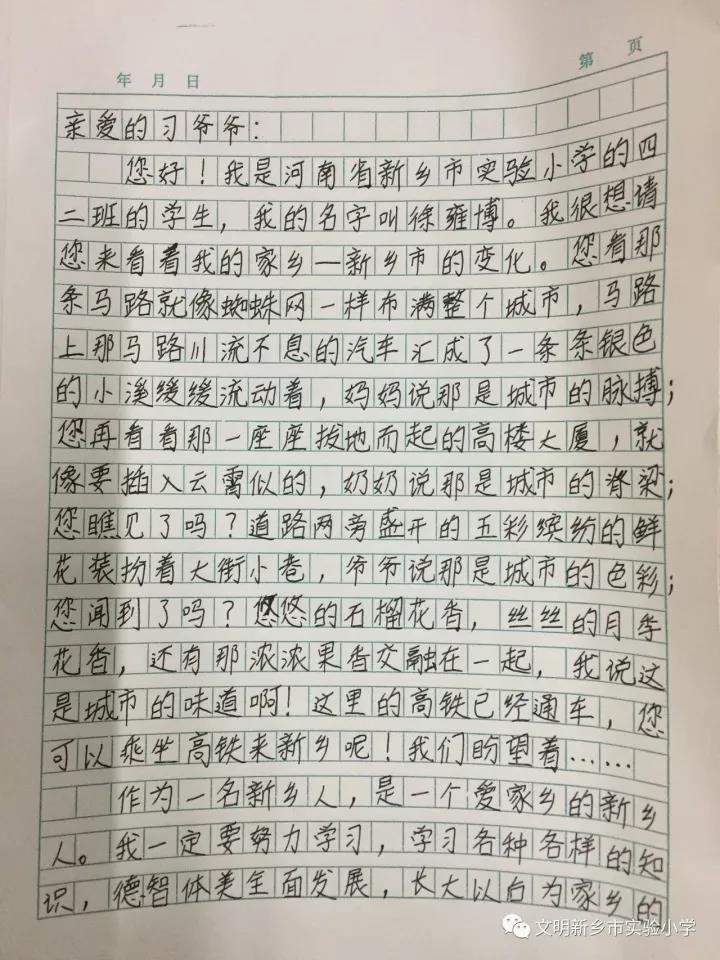 第 页
年 月 日
亲爱的习爷爷：
您好！我是河南省新乡市实验小学的四
二班的学生，我的名字叫徐雍博。我很想请
您来看看我的家乡—新乡市的变化。您看那
条马路就像蜘蛛网一样布满整个城市，马路
上那马路川流不息的汽车汇成了一条条银色
的小溪缓缓流动着，妈妈说那是城市的脉搏；
您再看看那一座座拔地而起的高楼大厦，就
像要插入云霄似的，奶奶说那是城市的脊梁；
您瞧见了吗？道路两旁盛开的五彩缤纷的鲜
花装扮着大街小巷，爷爷说那是城市的色彩；
您闻到了吗？悠悠的石榴花香，丝丝的月季
花香，还有那浓浓果香交融在一起，我说这
是城市的味道啊！这里的高铁已经通车，您
可以乘坐高铁来新乡呢！我们盼望着……
作为一名新乡人，是一个爱家乡的新乡
人。我一定要努力学习，学习各种各样的知
识，德智体美全面发展，长大以后为家乡的
文明新乡市实验小学